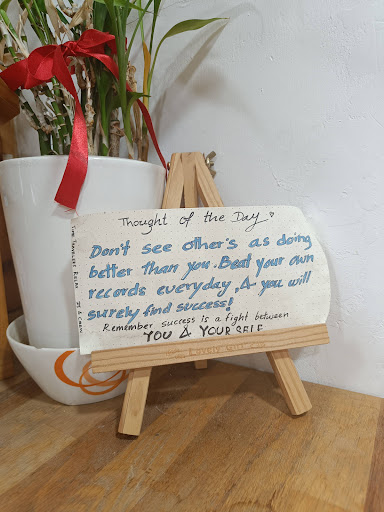 Thought of the Day
Don't see other's as doing
better than you. Beat your own
records everyday, & you will
surely find success!
Remember success is a fight between
YOU & YOUR SELF